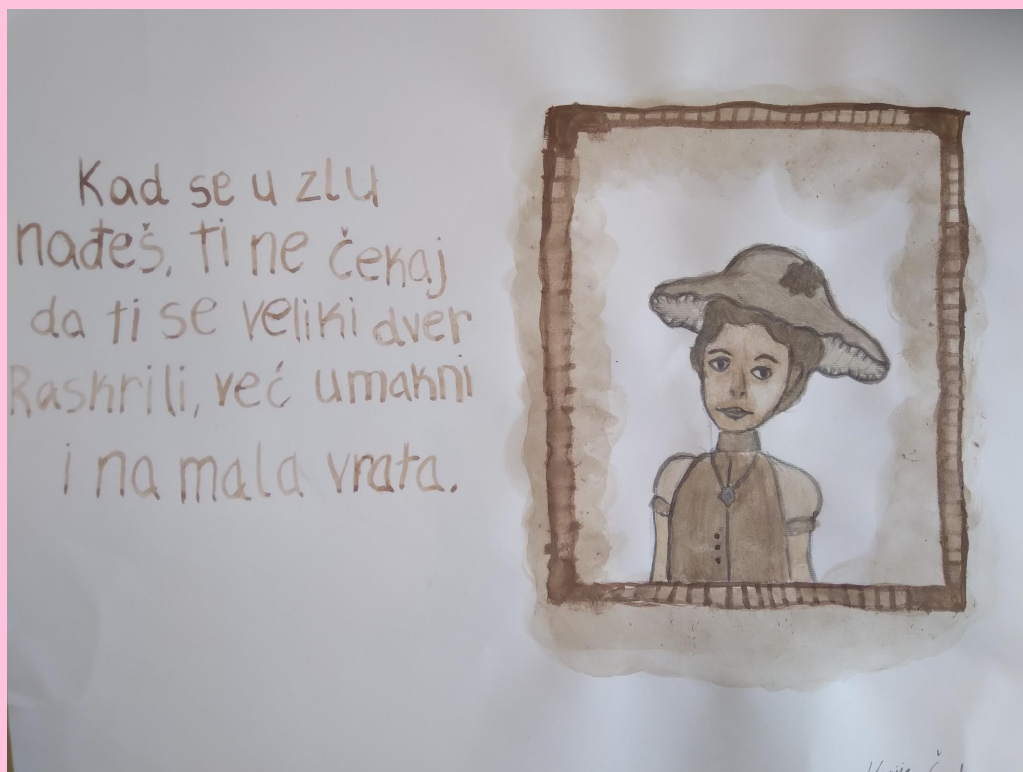 Kad se u zlu
nađeš, ti ne čekaj
da ti se veliki dver
Raskrili, već umakni
i na mala vrata.